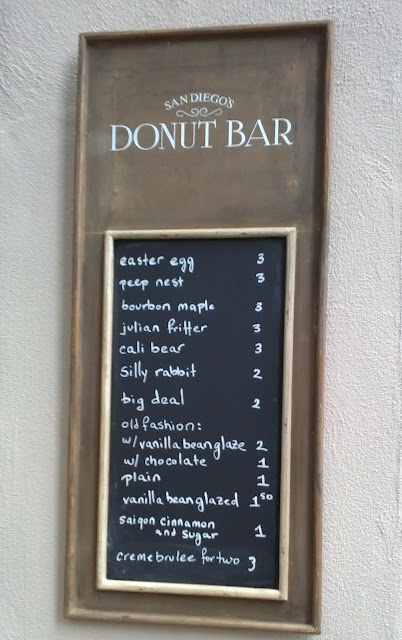 SAN DIEGO'S
DONUT BAR
easter egg 3
peep nest 3
bourbon maple 3
julian fritter 3
cali bear 3
silly rabbit 2
big deal 2
old fashion:
w/ vanilla bean glaze 2
w/ chocolate 1
plain 1
vanilla bean glazed 1 50
saigon cinnamon
and sugar 1
creme brulee for two 3